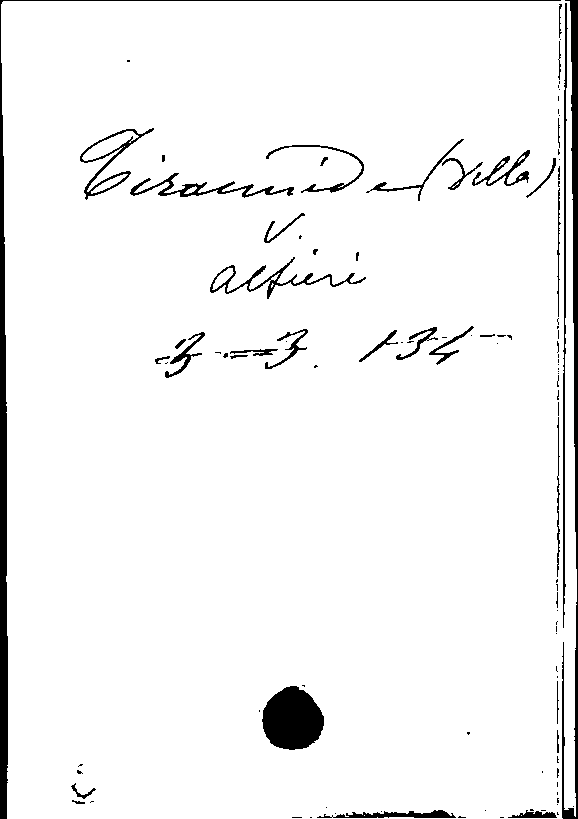 Tirannide (della)
V.
Alfieri
3 = 3. 134